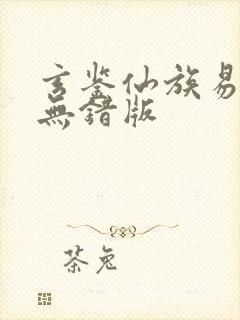 玄鉴仙族易
無錯版
茶兔